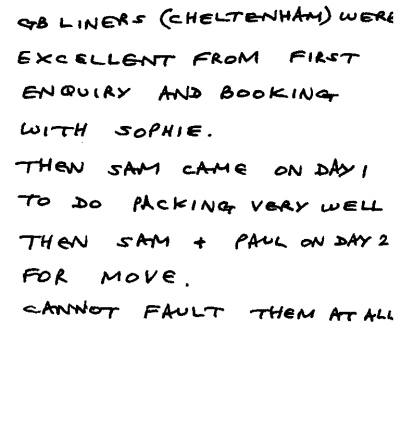 GB LINERS (CHELTENHAM) WERE
EXCELLENT FROM FIRST
ENQUIRY AND BOOKING
WITH SOPHIE.
THEN SAM CAME ON DAY 1
TO DO PACKING VERY WELL
THEN SAM + PAUL ON DAY 2
FOR MOVE.
CANNOT FAULT THEM AT ALL